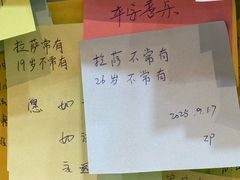 拉萨常有
19岁不常有
愿 如
如
拉萨不常有
26岁不常有
2025.9.17
ZP